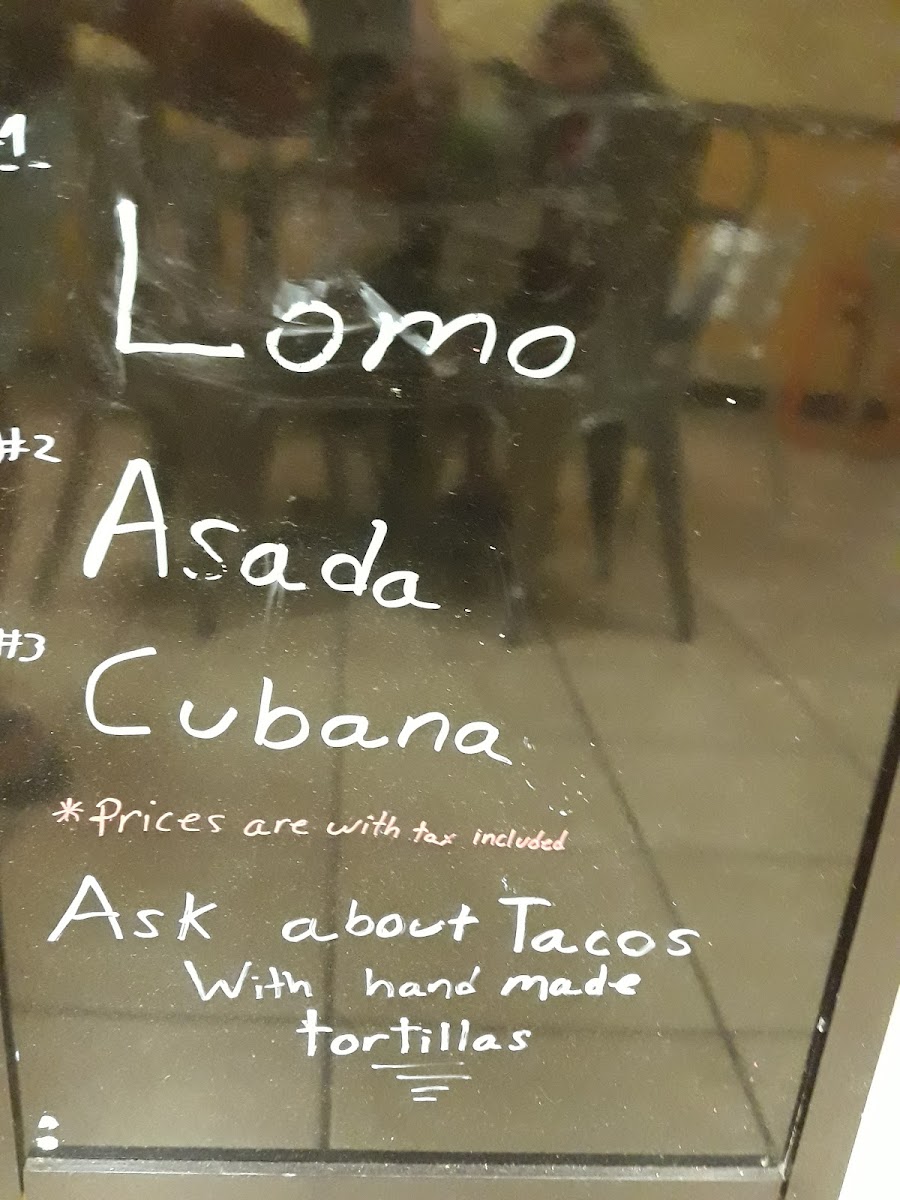 1
Lomo
#2
Asada
#3
Cubana
*Prices are with tax included
Ask about Tacos
With hand made
tortillas